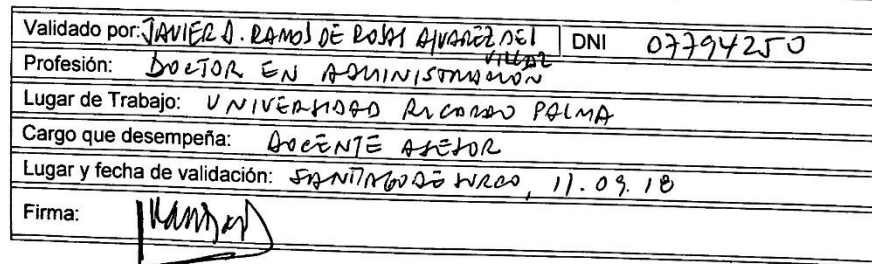 Validado por: JAVIER A. RAMOS DE ROSAS ALVAREZ DEL VILLAR DNI 07794250
Profesión: DOCTOR EN ADMINISTRACIÓN
Lugar de Trabajo: UNIVERSIDAD RICARDO PALMA
Cargo que desempeña: DOCENTE ASESOR
Lugar y fecha de validación: SANTIAGO DE SURCO, 11.09.18
Firma: